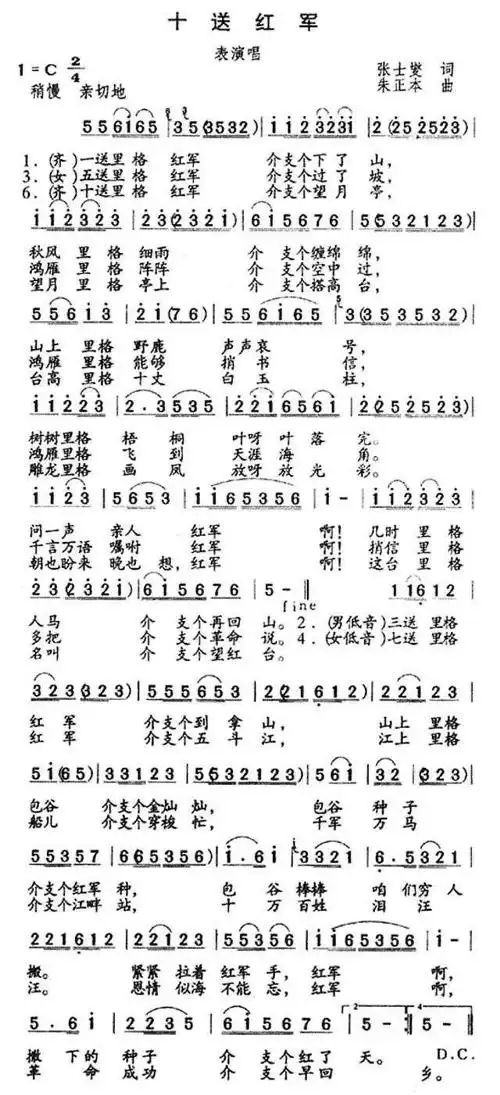 十送红军
表演唱
1=C 2/4
张士燮 词
稍慢 亲切地
朱正本 曲
5 5 6i6 5 |3 5 (3532)|i i 2 323i|2 (25 2523)|
1.(齐)一送里格 红军 介支个下了 山,
3.(女)五送里格 红军 介支个过了 坡,
6.(齐)十送里格 红军 介支个望月 亭,
i i 2 3 2 3|2·3 (2 3 2i)|6 i 5 6 7 6|5(5 3 2 1 2 3)|
秋风 里格 细雨 介 支个缠绵 绵,
鸿雁 里格 阵阵 介 支个空中 过,
望月 里格 亭上 介 支个搭高 台,
5 5 6 i 3|2·i (7 6)|5 5 6 i 6 5|3(3 5 3 5 3 2)|
山上 里格 野鹿 声声哀 号,
鸿雁 里格 能够 捎书 信,
台高 里格 十丈 白玉 柱,
i i 2 2 3|2·3 5 3 5|2 2 i 6 5 6 i|2(25 2 5 2 3)|
树树里格 梧桐 叶呀叶落 完。
鸿雁里格 飞到 天涯海 角。
雕龙里格 画凤 放呀放光 彩。
i i 2 3|5 6 5 3|i i 6 5 3 5 6|i - |i i 2 3|
问一声 亲人 红军 啊!几时 里格
千言万语 嘱咐 红军 啊!捎信 里格
朝也盼来 晚也 想,红军 啊!这台 里格
2 3 (2 3 2 i)|6 i 5 6 7 6|5 - ‖ 1 1 6 1 2
fine
人马 介 支个再回 山。2.(男低音)三送 里格
多把 介 支个革命 说。4.(女低音)七送 里格
名叫 介 支个望红 台。
3 2 3 (3 2 3)|5 5 5 6 5 3|2(2 1 6 1 2)|2 2 1 2 3|
红军 介支个到拿 山, 山上 里格
红军 介支个五斗 江, 江上 里格
5 i (6 5)|3 3 1 2 3|5(5 3 2 1 2 3)|5 6 i|3 2 (3 2 3)|
包谷 介支个金灿 灿, 包谷 种子
船儿 介支个穿梭 忙, 千军 万马
5 5 3 5 7|6(6 5 3 5 6)|i·6 i|3 3 2 1|6·5 3 2 1|
介支个红军 种, 包 谷棒棒 咱们穷人
介支个江畔 站, 十 万百姓 泪 汪
2 2 1 6 1 2|2 2 1 2 3|5 5 3 5 6|i i 6 5 3 5 6|i - |
搬。 紧紧 拉着 红军 手,红军 啊,
汪。 恩情 似海 不能 忘,红军 啊,
5·6 i|2 2 3 5|6 i 5 6 7 6|5 - :‖5 - ‖
撒 下的 种子 介 支个红了 天。 D.C.
革 命 成功 介 支个早回 乡。